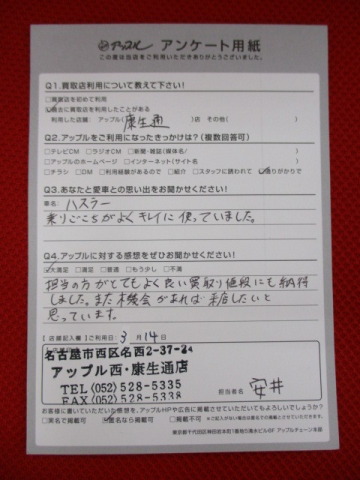 アップル アンケート用紙
この度は当店をご利用いただきありがとうございました。
Q1.買取店利用について教えて下さい!
□買取店を初めて利用
☑過去に買取店を利用したことがある
利用した店舗: アップル( 康生通 )店 その他( )
Q2.アップルをご利用になったきっかけは?(複数回答可)
□テレビCM □ラジオCM □新聞・雑誌(媒体名/ )
□アップルのホームページ □インターネット(サイト名 )
□チラシ □DM □利用経験があるので □紹介 □スタッフに誘われて ☑通りがかりで
Q3.あなたと愛車との思い出をお聞かせください!
車名: ハスラー
乗りごこちがよくキレイに使っていました。
Q4.アップルに対する感想をぜひお聞かせください!
☑大満足 □満足 □普通 □もう少し □不満
担当の方がとてもよく良い買取り値段にも納得
しました。また機会があれば来店したいと
思っています。
【店舗記入欄】ご利用日: 3月14日
名古屋市西区名西2-37-24
アップル西・康生通店
TEL(052)528-5335
FAX(052)528-5338
担当者名 安井
お客様に書いていただいた感想を、アップルHPや広告に掲載させていただいてもよろしいでしょうか?
□実名で掲載可 ☑匿名なら掲載可 □掲載不可
東京都千代田区神田岩本町1番地5清水ビル6F アップルチェーン本部